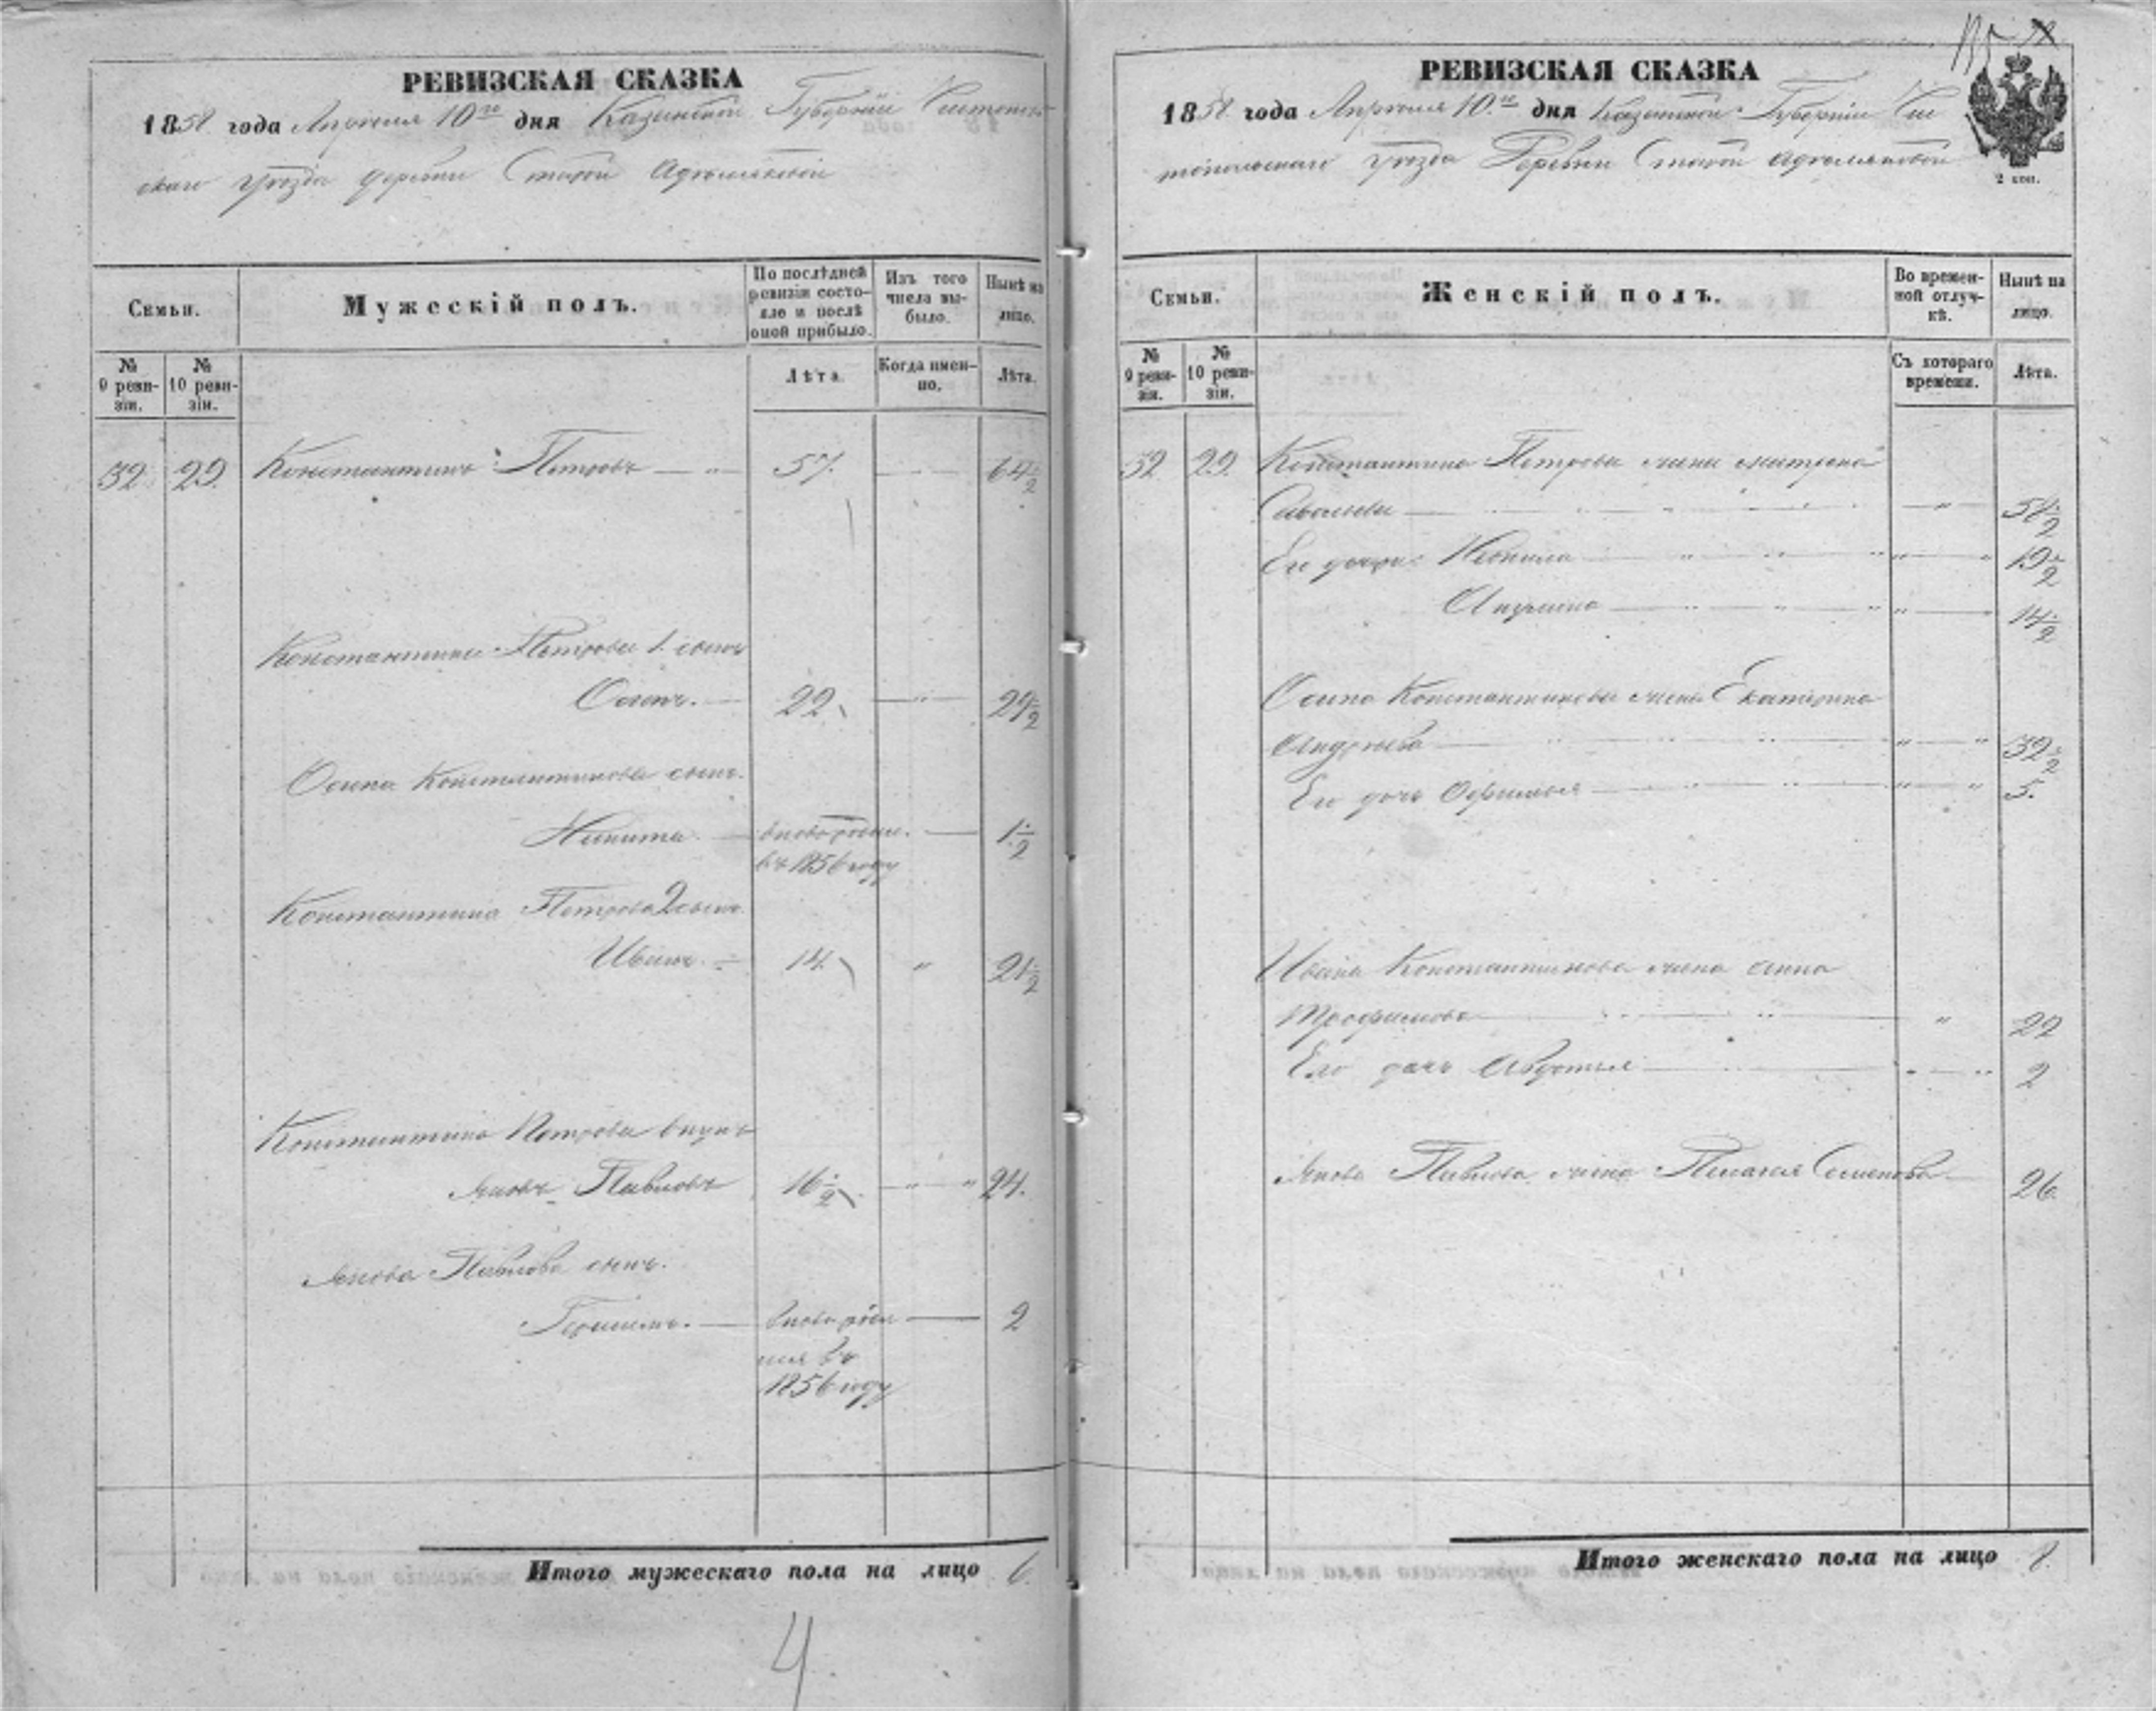 РЕВИЗСКАЯ СКАЗКА
1858 года Апреля 10го дня Казанской Губерніи Чистополь-
скаго уѣзда деревни Старой
Семьи.
Мужескій полъ.
По послѣдней ревизіи состо-яло и послѣ оной прибыло.
Изъ того числа вы-было.
Нынѣ на лицо.
№ 9 реви-зіи.
№ 10 реви-зіи.
Лѣта.
Когда имен-но.
Лѣта.
32 29 Константинъ Петровъ — 57. — 64½
Константина Петрова 1. сынъ
Осипъ. — 22 — 29½
Осипа Константинова сынъ.
Никита. — вновь рожден. — 1½
въ 1856 году
Константина Петрова 2 сынъ
Иванъ. — 14. " 21½
Константина Петрова внукъ
Яковъ Павловъ 16½ — 24.
Якова Павлова сынъ.
Герасимъ. — вновь рож — 2
въ
1856 году
Итого мужескаго пола на лицо 6.
4.
РЕВИЗСКАЯ СКАЗКА
1858 года Апреля 10го дня Казанской Губерніи Чис
топольскаго уѣзда Деревни Старой
2 коп.
Семьи.
Женскій полъ.
Во времен-ной отлуч-кѣ.
Нынѣ на лицо.
№ 9 реви-зіи.
№ 10 реви-зіи.
Съ котораго времени.
Лѣта.
32 29. Константина Петрова жена Матрена
Савельева — 58½
Его дочери: Неонила — 19½
14½
Осипа Константинова жена Екатерина
Андреева — 32½
Его дочь Офимья — 5.
Ивана Константинова жена Анна
Трофимова — " 22
Его дочь Авдотья — 2
Якова Павлова жена Пелагея Семенова 26.
Итого женскаго пола на лицо 8.